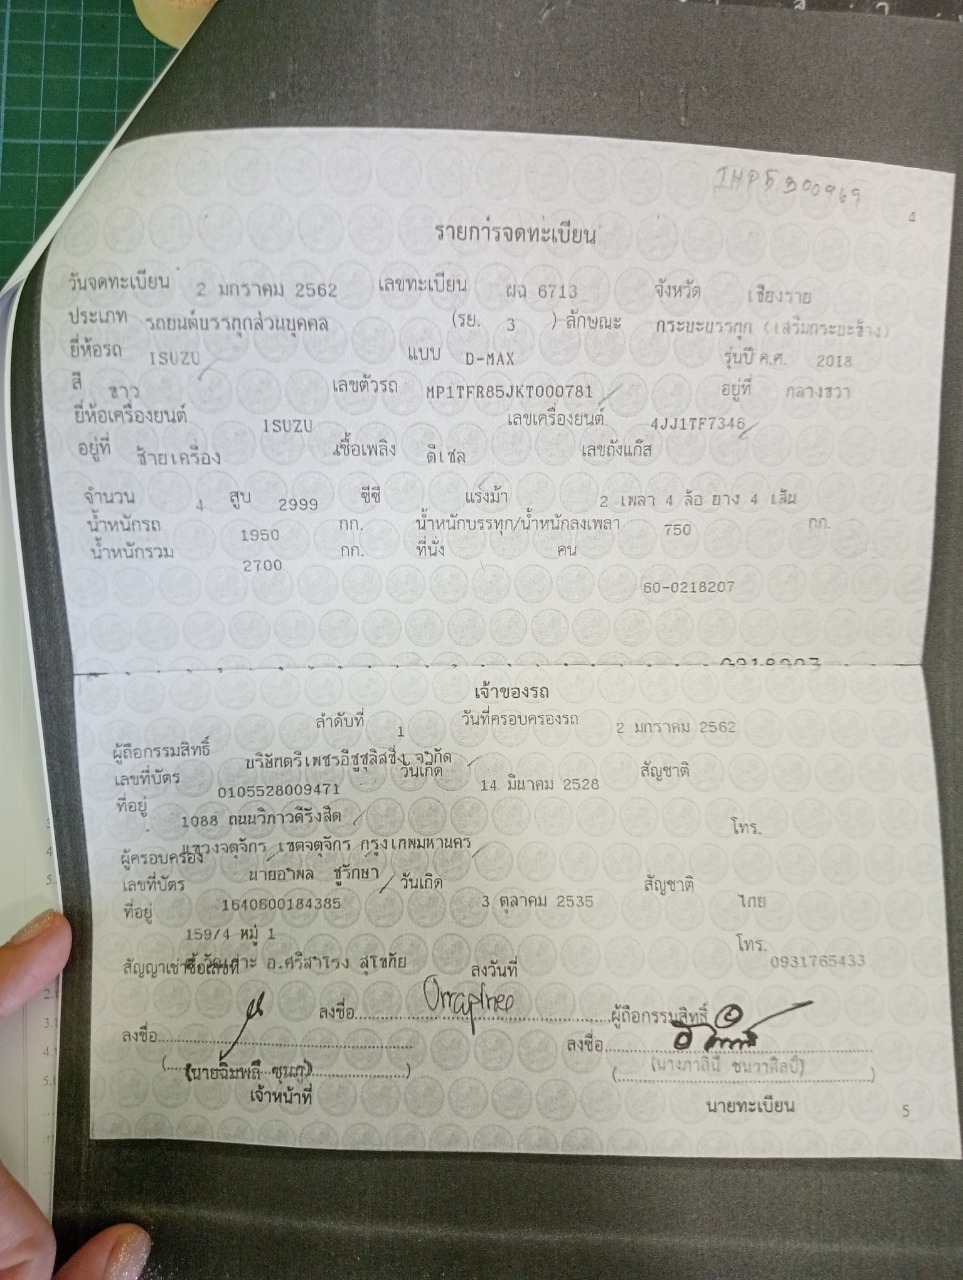 IHP5300969
4
รายการจดทะเบียน
วันจดทะเบียน 2 มกราคม 2562 เลขทะเบียน ผฉ 6713 จังหวัด เชียงราย
ประเภท รถยนต์บรรทุกส่วนบุคคล (รย. 3 ) ลักษณะ กระบะบรรทุก (เสริมกระบะข้าง)
ยี่ห้อรถ ISUZU แบบ D-MAX รุ่นปี ค.ศ. 2018
สี ขาว เลขตัวรถ MP1TFR85JKT000781 อยู่ที่ กลางขวา
ยี่ห้อเครื่องยนต์ ISUZU เลขเครื่องยนต์ 4JJ1TF7346
อยู่ที่ ซ้ายเครื่อง เชื้อเพลิง ดีเซล เลขถังแก๊ส
จำนวน 4 สูบ 2999 ซีซี แรงม้า 2 เพลา 4 ล้อ ยาง 4 เส้น
น้ำหนักรถ 1950 กก. น้ำหนักบรรทุก/น้ำหนักลงเพลา 750 กก.
น้ำหนักรวม 2700 กก. ที่นั่ง คน
60-0218207
เจ้าของรถ
ลำดับที่ 1 วันที่ครอบครองรถ 2 มกราคม 2562
ผู้ถือกรรมสิทธิ์ บริษัทตรีเพชรอีซูซุลิสซิ่ง จำกัด
เลขที่บัตร 0105528009471 วันเกิด 14 มีนาคม 2528 สัญชาติ
ที่อยู่ 1088 ถนนวิภาวดีรังสิต โทร.
แขวงจตุจักร เขตจตุจักร กรุงเทพมหานคร
ผู้ครอบครอง นายอำพล ชูรักษา
เลขที่บัตร 1640600184385 วันเกิด 3 ตุลาคม 2535 สัญชาติ ไทย
ที่อยู่ 159/4 หมู่ 1 โทร. 0931765433
สัญญาเช่าซื้อเลขที่ อ.ศรีสำโรง สุโขทัย ลงวันที่
ลงชื่อ ผู้ถือกรรมสิทธิ์
ลงชื่อ ลงชื่อ
(นายฉิมพลี ) ( )
เจ้าหน้าที่ นายทะเบียน
5